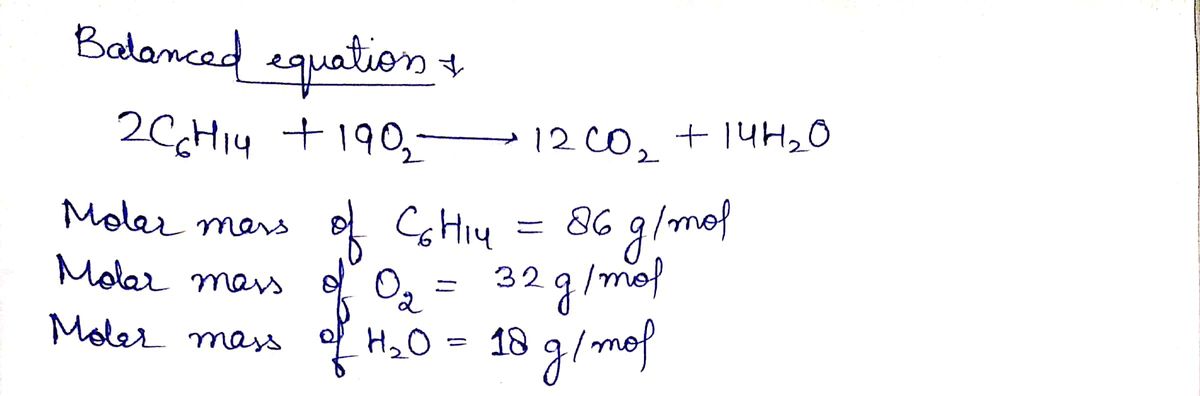 Balanced equation :
2C₆H14 + 19O₂ ⟶ 12 CO₂ + 14H₂O
Molar mass of C₆H14 = 86 g/mol
Molar mass of O₂ = 32 g/mol
Molar mass of H₂O = 18 g/mol